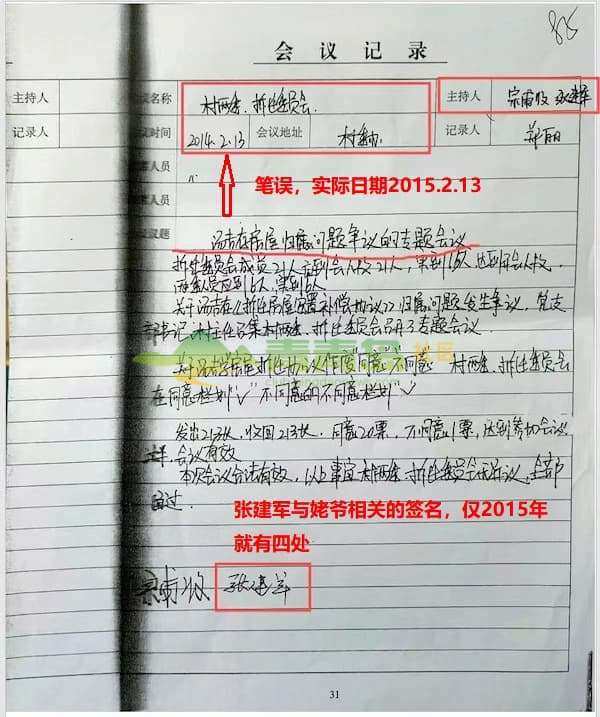 85
会议记录
主持人 议名称 村两委、拆迁委员会 主持人 宗甫收 张建军
记录人 议时间 2014.2.13 会议地址 村委办 记录人 郑丽
人员
笔误，实际日期2015.2.13
人员
议题 房屋归属问题争议的专题会议
拆迁委员会成员21人 应到会人数21人，实到 人，达到开会人数，
两委人员应到6人，实到6人
关于 《拆迁房屋安置补偿协议》归属问题发生争议，党支
部书记、村主任召集村两委、拆迁委员会召开了专题会议
青青岛社区
房屋拆迁协议作废"同意""不同意" 村两委、拆迁委员会
在同意栏划"√"不同意的不同意栏划"√
发出21张，收回21张，同意20票，不同意1票，达到参加会议
会议有效
本次会议合法有效，以上事宜村两委、拆迁委员会无异议，全部
通过
张建军与姥爷相关的签名，仅2015年
就有四处
宗甫收 张建军
31